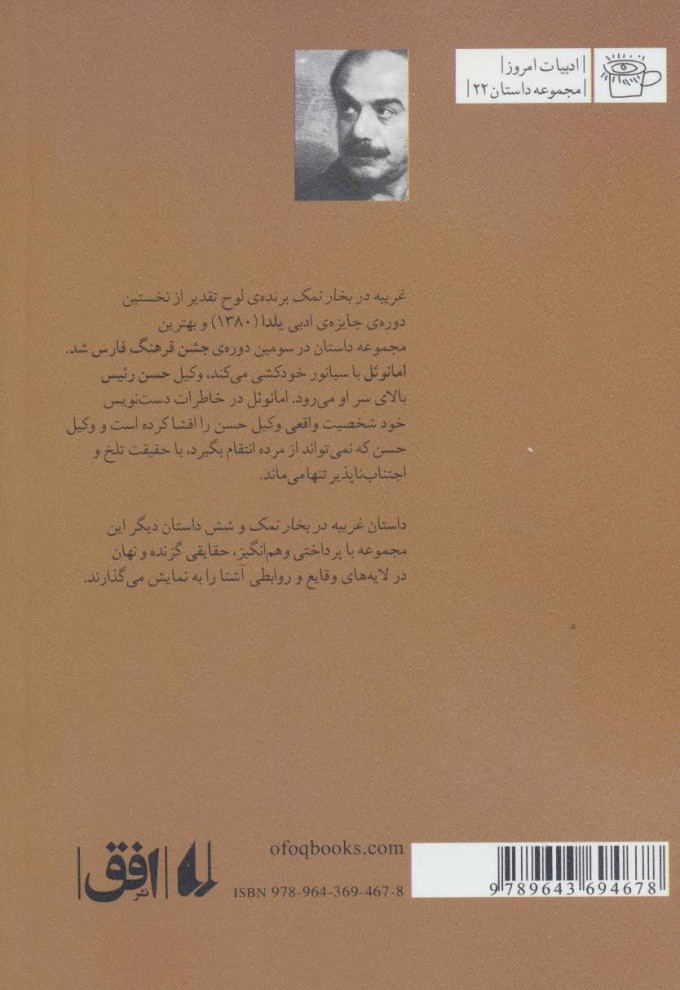 | ادبیات امروز |
| مجموعه داستان ۲۲ |
غریبه در بخار نمک برنده‌ی لوح تقدیر از نخستین
دوره‌ی جایزه‌ی ادبی یلدا (۱۳۸۰) و بهترین
مجموعه داستان در سومین دوره‌ی جشن فرهنگ فارس شد.
امانوئل با سیانور خودکشی می‌کند، وکیل حسن رئیس
بالای سر او می‌رود. امانوئل در خاطرات دست‌نویس
خود شخصیت واقعی وکیل حسن را افشا کرده است و وکیل
حسن که نمی‌تواند از مرده انتقام بگیرد، با حقیقت تلخ و
اجتناب‌ناپذیر تنها می‌ماند.
داستان غریبه در بخار نمک و شش داستان دیگر این
مجموعه با پرداختی وهم‌انگیز، حقایقی گزنده و نهان
در لایه‌های وقایع و روابطی آشنا را به نمایش می‌گذارند.
ofoqbooks.com
نشر افق
ISBN 978-964-369-467-8
9 789643 694678